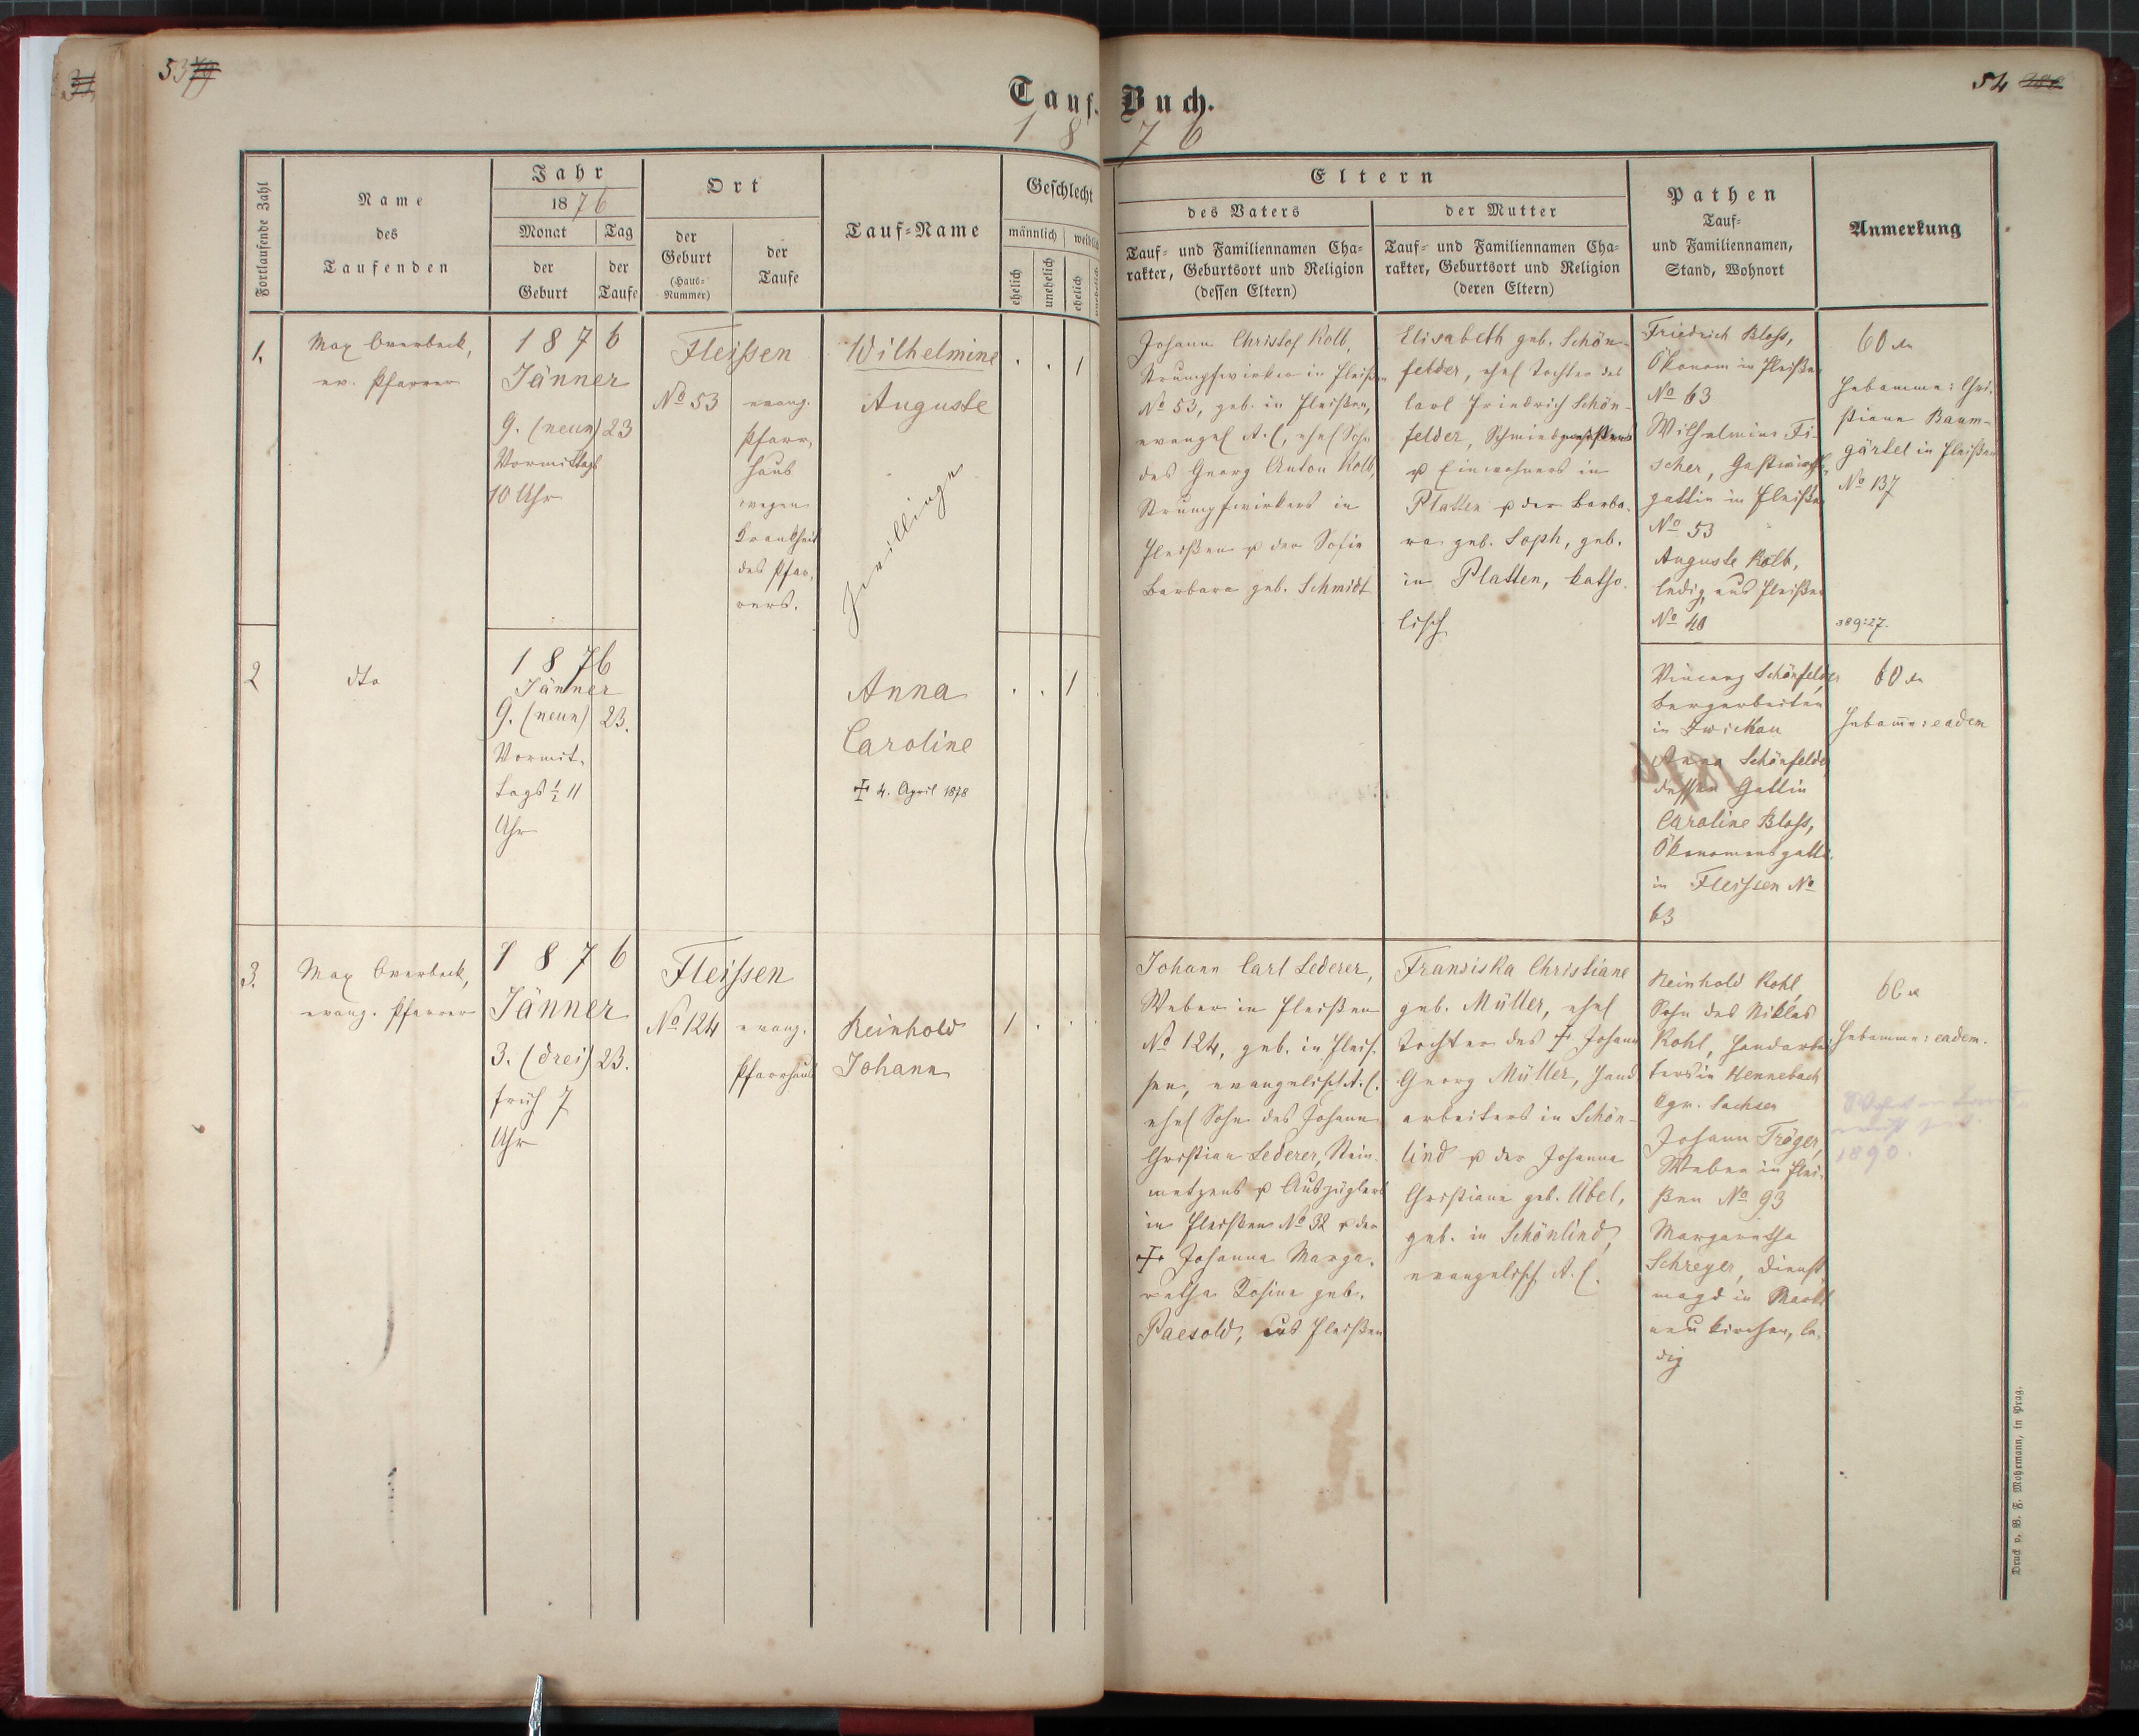 53
54
Tauf-Buch.
1876
Fortlaufende Zahl
Name
des
Taufenden
Jahr
1876
Monat
der
Geburt
Tag
der
Taufe
Ort
der
Geburt
(Haus-
Nummer)
der
Taufe
Tauf-Name
Geschlecht
männlich
weiblich
ehelich
unehelich
ehelich
unehelich
Eltern
des Vaters
Tauf- und Familiennamen Cha-
rakter, Geburtsort und Religion
(dessen Eltern)
der Mutter
Tauf- und Familiennamen Cha-
rakter, Geburtsort und Religion
(deren Eltern)
Pathen
Tauf-
und Familiennamen,
Stand, Wohnort
Anmerkung
1.
Max Overbeck,
ev. Pfarrer
1876
Jänner
9. (neun)
Vormittags
10 Uhr
23
Fleissen
No 53
evang.
Pfarr-
haus
wegen
Krankheit
des Pfar-
rers.
Wilhelmine
Auguste
Zwillinge
1
Johann Christof Kolb,
Strumpfwirker in Fleißen
No 53, geb. in Fleißen,
evangel A. C., ehel Sohn
des Georg Anton Kolb,
Strumpfwirkers in
Fleißen u der Sofie
Barbara geb. Schmidt
Elisabeth geb. Schön-
felder, ehel Tochter des
Carl Friedrich Schön-
felder, Schmiedmeisters
u Einwohners in
Platten u der Barba-
ra geb. Soph, geb.
in Platten, katho-
lisch
Friedrich Bloss,
Ökonom in Fleißen
No 63
Wilhelmine Fi-
scher, Gastwirths-
gattin in Fleißen
No 53
Auguste Kolb,
ledig aus Fleißen
No 40
60
Hebamme: Chri-
stiane Baum-
gärtel in Fleißen
No 137
389:27.
2
dto
1876
Jänner
9. (neun)
Vormit-
tags ½ 11
Uhr
23.
Anna
Caroline
+ 4. April 1878
1
Vincenz Schönfelder
Bergarbeiter
in Zwickau
Anna Schönfelder
dessen Gattin
Caroline Bloss,
Ökonomensgattin
in Fleissen No
63
60
Hebamme: eadem
3.
Max Overbeck,
evang. Pfarrer
1876
Jänner
3. (drei)
früh 7
Uhr
23.
Fleissen
No 124
evang.
Pfarrhaus
Reinhold
Johann
1
Johann Carl Lederer,
Weber in Fleißen
No 124, geb. in Fleis-
sen, evangelisch A. C.
ehel Sohn des Johann
Christian Lederer, Stein-
metzens u Auszüglers
in Fleißen No 32 u der
+ Johanna Marga-
retha Rosina geb.
Paesold, aus Fleißen
Franziska Christiane
geb. Müller, ehel
Tochter des + Johann
Georg Müller, Hand-
arbeiters in Schön-
lind u der Johanna
Christiane geb. Übel,
geb. in Schönlind,
evangelisch A. C.
Reinhold Kohl,
Sohn des Niklas
Kohl, Handarbei-
ters in Hennebach
Kgr. Sachsen
Johann Tröger,
Weber in Flei-
ßen No 93
Margaretha
Schreyer, Dienst-
magd in Markt
neukirchen, le-
dig
60
Hebamme: eadem.
1890.
Druck v. B. F. Mohrmann, in Prag.